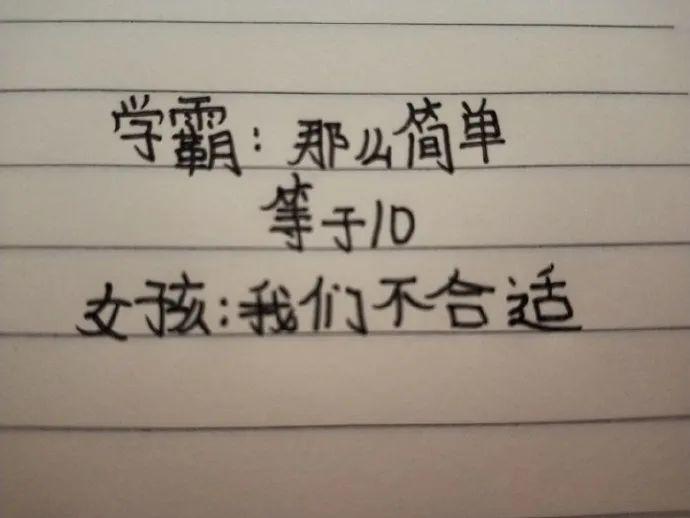 学霸：那么简单
等于10
女孩：我们不合适